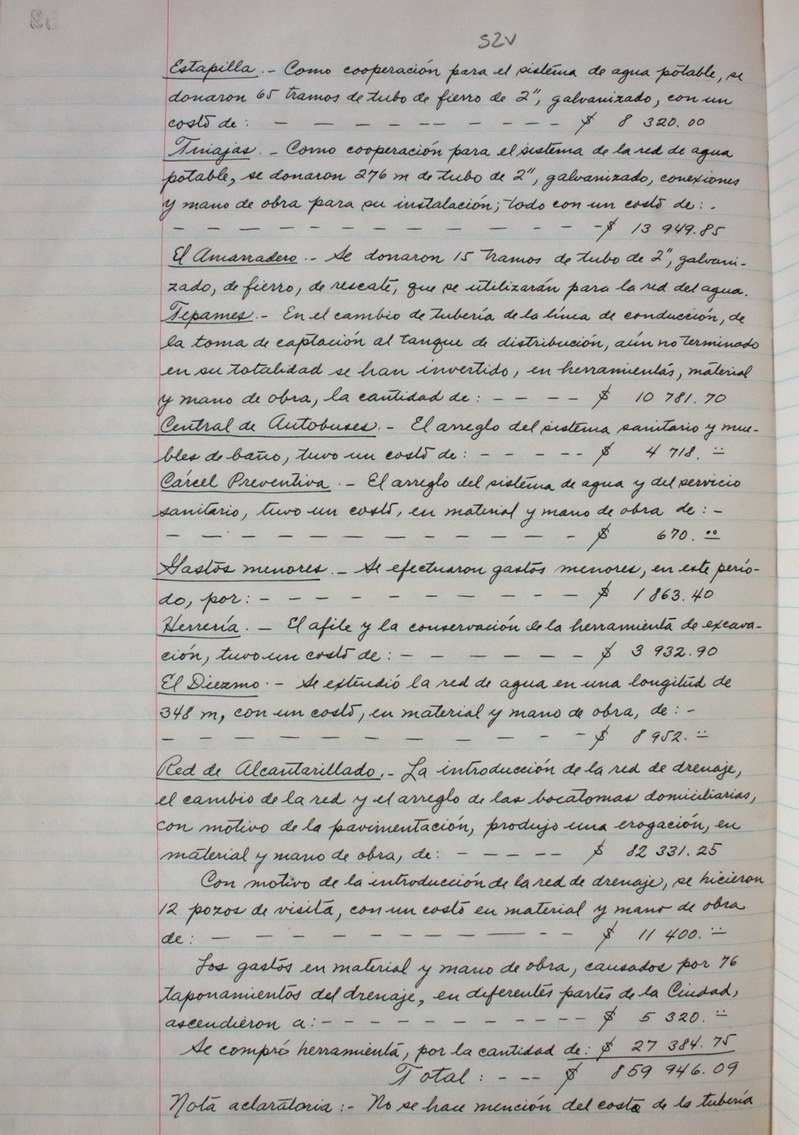 52V
Estapilla.- Como cooperación para el sistema de agua potable, se
donaron 65 tramos de tubo de fierro de 2", galvanizado, con un
costo de: - - - - - - - - - - $ 8 320.00
Tinajas.- Como cooperación para el sistema de la red de agua
potable, se donaron 276 m de tubo de 2", galvanizado, conexiones
y mano de obra para su instalación; todo con un costo de: -
- - - - - - - - - - - - - $ 13 949.85
El Amarradero.- Se donaron 15 tramos de tubo de 2", galvani-
zado, de fierro, de rescate, que se utilizarán para la red del agua.
Tepames.- En el cambio de tubería de la línea de conducción, de
la toma de captación al tanque de distribución, aún no terminado
en su totalidad se han invertido, en herramientas, material
y mano de obra, la cantidad de: - - - - $ 10 781.70
Central de Autobuses.- El arreglo del sistema sanitario y mue-
bles de baño, tuvo un costo de: - - - - - $ 4 718.=
Cárcel Preventiva.- El arreglo del sistema de agua y del servicio
sanitario, tuvo un costo, en material y mano de obra de: -
- - - - - - - - - - - - - $ 670.=
Gastos menores.- Se efectuaron gastos menores, en este perío-
do, por: - - - - - - - - - - - $ 1 863.40
Herrería.- El afile y la conservación de la herramienta de excava-
ción, tuvo un costo de: - - - - - - - $ 3 932.90
El Diezmo.- Se extendió la red de agua en una longitud de
348 m, con un costo, en material y mano de obra, de: -
- - - - - - - - - - - - - $ 8 952.=
Red de Alcantarillado.- La introducción de la red de drenaje,
el cambio de la red y el arreglo de las bocatomas domiciliarias,
con motivo de la pavimentación, produjo una erogación, en
material y mano de obra, de: - - - - - $ 82 331.25
Con motivo de la introducción de la red de drenaje, se hicieron
12 pozos de visita, con un costo en material y mano de obra
de: - - - - - - - - - - - $ 11 400.=
Los gastos en material y mano de obra, causados por 76
taponamientos del drenaje, en diferentes partes de la Ciudad,
ascendieron a: - - - - - - - - - - $ 5 320.=
Se compró herramienta, por la cantidad de: $ 27 384.75
Total: - - - $ 859 946.09
Nota aclaratoria:- No se hace mención del costo de la tubería